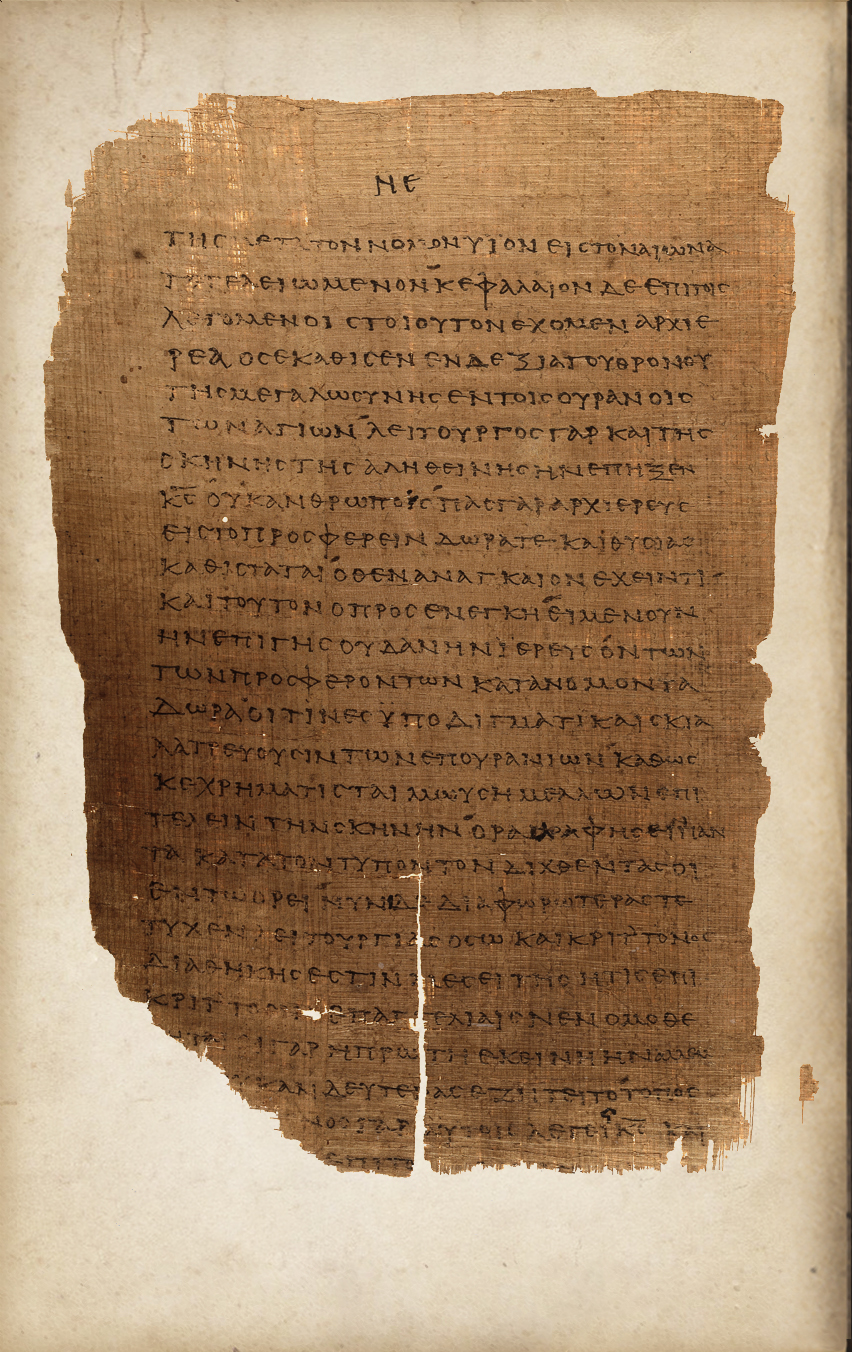 ΝΕ
ΤΗϹΜΕΤΑΤΟΝΝΟΜΟΝΥΙΟΝΕΙϹΤΟΝΑΙΩΝΑ
ΤΕΤΕΛΕΙΩΜΕΝΟΝΚΕΦΑΛΑΙΟΝΔΕΕΠΙΤΟΙϹ
ΛΕΓΟΜΕΝΟΙϹΤΟΙΟΥΤΟΝΕΧΟΜΕΝΑΡΧΙΕ
ΡΕΑΟϹΕΚΑΘΙϹΕΝΕΝΔΕΞΙΑΤΟΥΘΡΟΝΟΥ
ΤΗϹΜΕΓΑΛΩϹΥΝΗϹΕΝΤΟΙϹΟΥΡΑΝΟΙϹ
ΤΩΝΑΓΙΩΝΛΕΙΤΟΥΡΓΟϹΓΑΡΚΑΙΤΗϹ
ϹΚΗΝΗϹΤΗϹΑΛΗΘΕΙΝΗϹΗΝΕΠΗΞΕΝ
Κ̅Ϲ̅ΟΥΚΑΝΘΡΩΠΟϹΠΑϹΓΑΡΑΡΧΙΕΡΕΥϹ
ΕΙϹΤΟΠΡΟϹΦΕΡΕΙΝΔΩΡΑΤΕΚΑΙΘΥϹΙΑϹ
ΚΑΘΙϹΤΑΤΑΙΟΘΕΝΑΝΑΓΚΑΙΟΝΕΧΕΙΝΤΙ
ΚΑΙΤΟΥΤΟΝΟΠΡΟϹΕΝΕΓΚΗΕΙΜΕΝΟΥΝ
ΗΝΕΠΙΓΗϹΟΥΔΑΝΗΝΙΕΡΕΥϹΟΝΤΩΝ
ΤΩΝΠΡΟϹΦΕΡΟΝΤΩΝΚΑΤΑΝΟΜΟΝΤΑ
ΔΩΡΑΟΙΤΙΝΕϹΥΠΟΔΙΓΜΑΤΙΚΑΙϹΚΙΑ
ΛΑΤΡΕΥΟΥϹΙΝΤΩΝΕΠΟΥΡΑΝΙΩΝΚΑΘΩϹ
ΚΕΧΡΗΜΑΤΙϹΤΑΙΜΩΥϹΗΜΕΛΛΩΝΕΠΙ
ΤΕΛΕΙΝΤΗΝϹΚΗΝΗΝΟΡΑ
ΤΑΚΑΤΑΤΟΝΤΥΠΟΝΤΟΝΔΙΧΘΕΝΤΑϹΟΙ
ΕΝΤΩΟΡΕΙΝΥΝΔΕΔΙΑΦΩΡΩΤΕΡΑϹΤΕ
ΤΥΧΕΝΛΕΙΤΟΥΡΓΙΑϹΟϹΩΚΑΙΚΡΙΤΤΟΝΟϹ
ΔΙΑΘΗΚΗϹΕϹΤΙΝΜΕϹΕΙΤΗϹΗΤΙϹΕΠΙ
ΕΠΑΓΓΕΛΙΑΙϹΝΕΝΟΜΟΘΕ
ΓΑΡΗΠΡΩΤΗΕΚΕΙΝΗΗΝ
ΑΝΔΕΥΤΕΡΑϹΕΖΗΤΕΙΤΟΤΟΠΟϹ
ΛΕΓΕΙΚ̅Ϲ̅ΚΑΙ